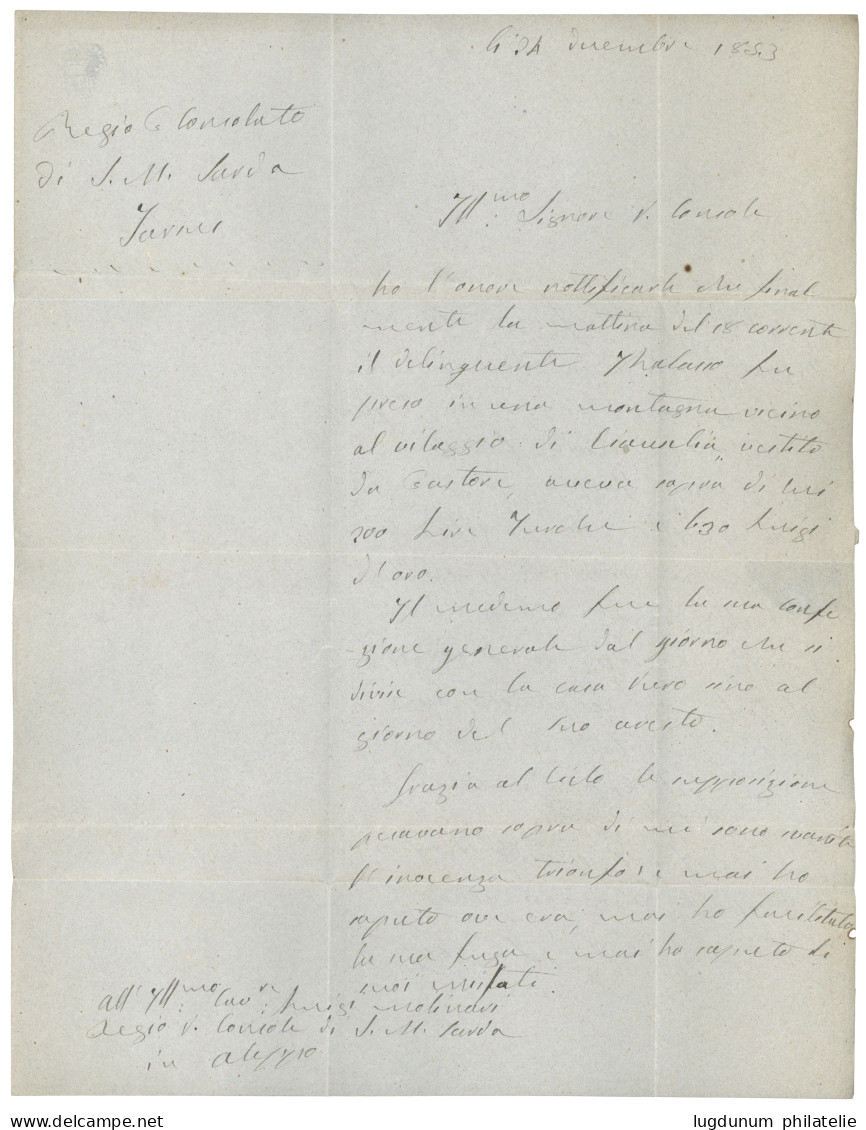 li 24 dicembre 1853
Regio C Consolato
di S. M. Sarda
Tarsus
Ill.mo Signore V. Console
ho l'onore nottificarle che final
mente la mattina del 18 corrente
il delinquente Thalasso fu
preso in una montagna vicino
al vilaggio di vestito
da Pastore, aveva sopra di lui
200 Lire Turche e 630 Luigi
d'oro.
Il medemo fece la sua confe
-zione generale dal giorno che si
divise con la casa sino al
giorno del suo aresto.
Grazia al Cielo le supposizione
pesavano sopra di mei sono svanite
l'inocenza trionfò: e mai ho
saputo ove era, mai ho facilitato
la sua fuga e mai ho saputo di
suoi misfati.
All' Ill.mo Cav.re Luigi Molinari
Regio V. Console di S. M. Sarda
in Aleppo
lugdunum philatelie